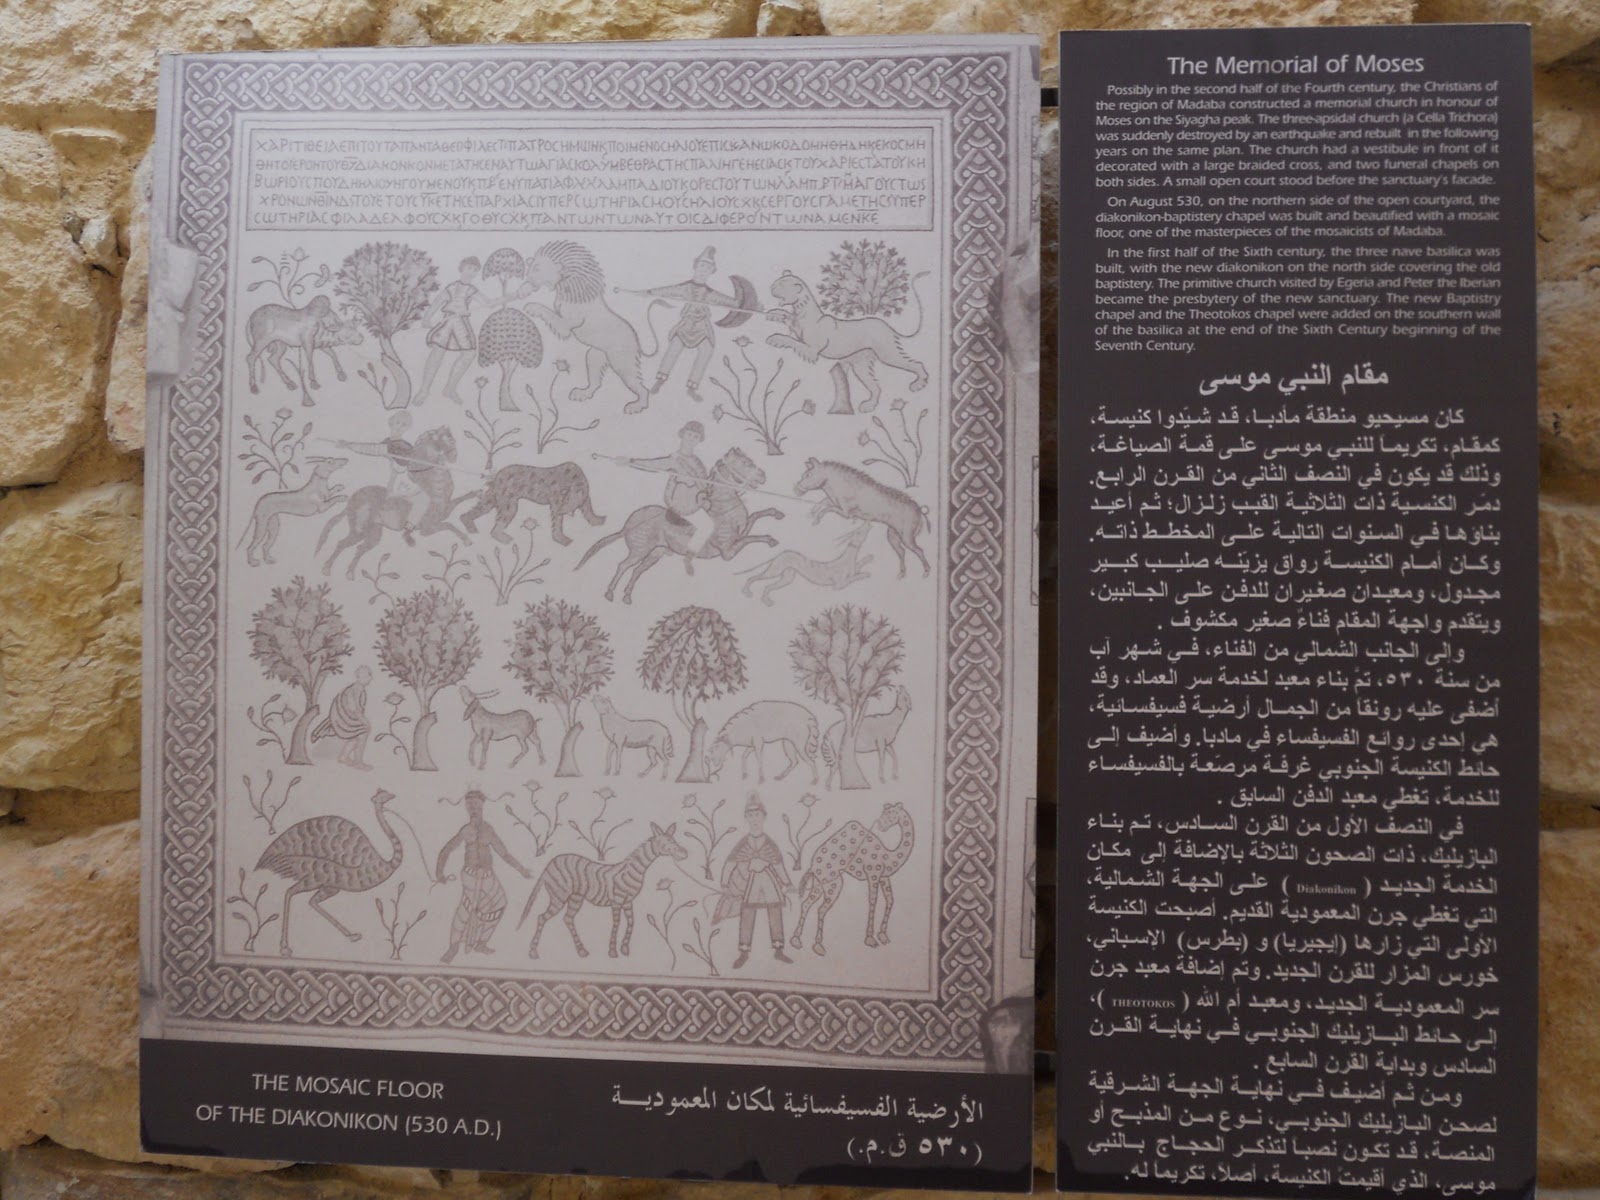 ΧΑΡΙΤΙΘΕΙΑΕΠΙΤΟΥΤΑΠΑΝΤΑΘΕΟΦΙΛΕСΤΠΑΤΡΟСΗΜΩΝΚΠΟΙΜΕΝΟСΗΛΙΟΥΕΠΙСΚΑΝΩΚΟΔΟΜΗΘΗΚΕΚΟСΜΗ
ΘΗΤΟΙΕΡΟΝΤΟΥΘΥΔΙΑΚΟΝΚΟΝΜΕΤΑΤΗСΕΝΑΥΤΩΑΓΙΑСΚΟΛΥΜΒΕΘΡΑСΤΗСΠΑΛΗΓΕΝΕСΙΑСΚΤΟΥΧΑΡΙΕСΤΑΤΟΥΚΗ
THE MOSAIC FLOOR
OF THE DIAKONIKON (530 A.D.)
الأرضية الفسيفسائية لمكان المعمودية
(٥٣٠ ق.م.)
The Memorial of Moses
Possibly in the second half of the Fourth century, the Christians of
the region of Madaba constructed a memorial church in honour of
Moses on the Siyagha peak. The three-apsidal church (a Cella Trichora)
was suddenly destroyed by an earthquake and rebuilt in the following
years on the same plan. The church had a vestibule in front of it
decorated with a large braided cross, and two funeral chapels on
both sides. A small open court stood before the sanctuary's facade.
On August 530, on the northern side of the open courtyard, the
diakonikon-baptistery chapel was built and beautified with a mosaic
floor, one of the masterpieces of the mosaicists of Madaba.
In the first half of the Sixth century, the three nave basilica was
built, with the new diakonikon on the north side covering the old
baptistery. The primitive church visited by Egeria and Peter the Iberian
became the presbytery of the new sanctuary. The new Baptistry
chapel and the Theotokos chapel were added on the southern wall
of the basilica at the end of the Sixth Century beginning of the
Seventh Century.
مقام النبي موسى
كان مسيحيو منطقة مأدبا، قد شيّدوا كنيسة،
كمقام، تكريماً للنبي موسى على قمة الصياغة،
وذلك قد يكون في النصف الثاني من القرن الرابع.
دمّر الكنسية ذات الثلاثية القبب زلزال؛ ثم أعيد
بناؤها في السنوات التالية على المخطط ذاته.
وكان أمام الكنيسة رواق يزينه صليب كبير
مجدول، ومعبدان صغيران للدفن على الجانبين،
ويتقدم واجهة المقام فناءٌ صغير مكشوف .
وإلى الجانب الشمالي من الفناء، في شهر آب
من سنة ٥٣٠، تمَّ بناء معبد لخدمة سر العماد، وقد
أضفى عليه رونقاً من الجمال أرضية فسيفسائية،
هي إحدى روائع الفسيفساء في مادبا. وأضيف إلى
حائط الكنيسة الجنوبي غرفة مرصّعة بالفسيفساء
للخدمة، تغطي معبد الدفن السابق .
في النصف الأول من القرن السادس، تم بناء
البازيليك، ذات الصحون الثلاثة بالإضافة إلى مكان
الخدمة الجديد ( Diakonikon ) على الجهة الشمالية،
التي تغطي جرن المعمودية القديم. أصبحت الكنيسة
الأولى التي زارها (إيجيريا) و (بطرس) الإسباني،
خورس المزار للقرن الجديد. وتم إضافة معبد جرن
سر المعمودية الجديد، ومعبد أم الله ( THEOTOKOS )،
إلى حائط البازيليك الجنوبي في نهاية القرن
السادس وبداية القرن السابع .
ومن ثم أضيف في نهاية الجهة الشرقية
لصحن البازيليك الجنوبي، نوع من المذبح أو
المنصة، قد تكون نصباً لتذكر الحجاج بالنبي
موسى، الذي أقيمتْ الكنيسة، أصلاً، تكريماً له.